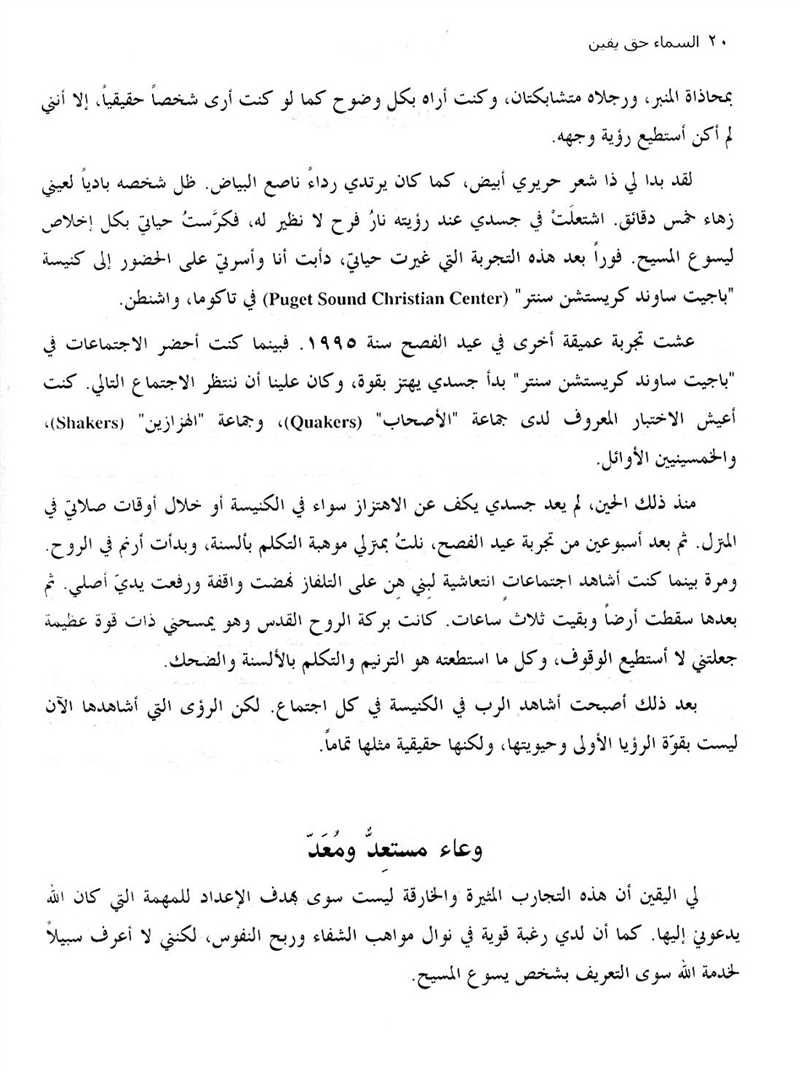 ٢٠ السماء حق يقين
بمحاذاة المنبر، ورجلاه متشابكتان، وكنت أراه بكل وضوح كما لو كنت أرى شخصاً حقيقياً، إلا أنني
لم أكن أستطيع رؤية وجهه.
لقد بدا لي ذا شعر حريري أبيض، كما كان يرتدي رداءً ناصع البياض. ظل شخصه بادياً لعيني
زهاء خمس دقائق. اشتعلَتْ في جسدي عند رؤيته نارُ فرح لا نظير له، فكرَّستُ حياتي بكل إخلاص
ليسوع المسيح. فوراً بعد هذه التجربة التي غيرت حياتي، دأبت أنا وأسرتي على الحضور إلى كنيسة
"باجيت ساوند كريستشن سنتر" (Puget Sound Christian Center) في تاكوما، واشنطن.
عشت تجربة عميقة أخرى في عيد الفصح سنة ١٩٩٥. فبينما كنت أحضر الاجتماعات في
"باجيت ساوند كريستشن سنتر" بدأ جسدي يهتز بقوة، وكان علينا أن ننتظر الاجتماع التالي. كنت
أعيش الاختبار المعروف لدى جماعة "الأصحاب" (Quakers)، وجماعة "الهزازين" (Shakers)،
والخمسينيين الأوائل.
منذ ذلك الحين، لم يعد جسدي يكف عن الاهتزاز سواء في الكنيسة أو خلال أوقات صلاتي في
المنزل. ثم بعد أسبوعين من تجربة عيد الفصح، نلتُ بمنزلي موهبة التكلم بألسنة، وبدأت أرنم في الروح.
ومرة بينما كنت أشاهد اجتماعاتٍ انتعاشية لبِني هِن على التلفاز نهضت واقفة ورفعت يديّ أصلي. ثم
بعدها سقطت أرضاً وبقيت ثلاث ساعات. كانت بركة الروح القدس وهو يمسحني ذات قوة عظيمة
جعلتني لا أستطيع الوقوف، وكل ما استطعته هو الترنيم والتكلم بالألسنة والضحك.
بعد ذلك أصبحت أشاهد الرب في الكنيسة في كل اجتماع. لكن الرؤى التي أشاهدها الآن
ليست بقوّة الرؤيا الأولى وحيويتها، ولكنها حقيقية مثلها تماماً.
وعاء مستعِدٌّ ومُعَدّ
لي اليقين أن هذه التجارب المثيرة والخارقة ليست سوى بهدف الإعداد للمهمة التي كان الله
يدعوني إليها. كما أن لدي رغبة قوية في نوال مواهب الشفاء وربح النفوس، لكنني لا أعرف سبيلاً
لخدمة الله سوى التعريف بشخص يسوع المسيح.